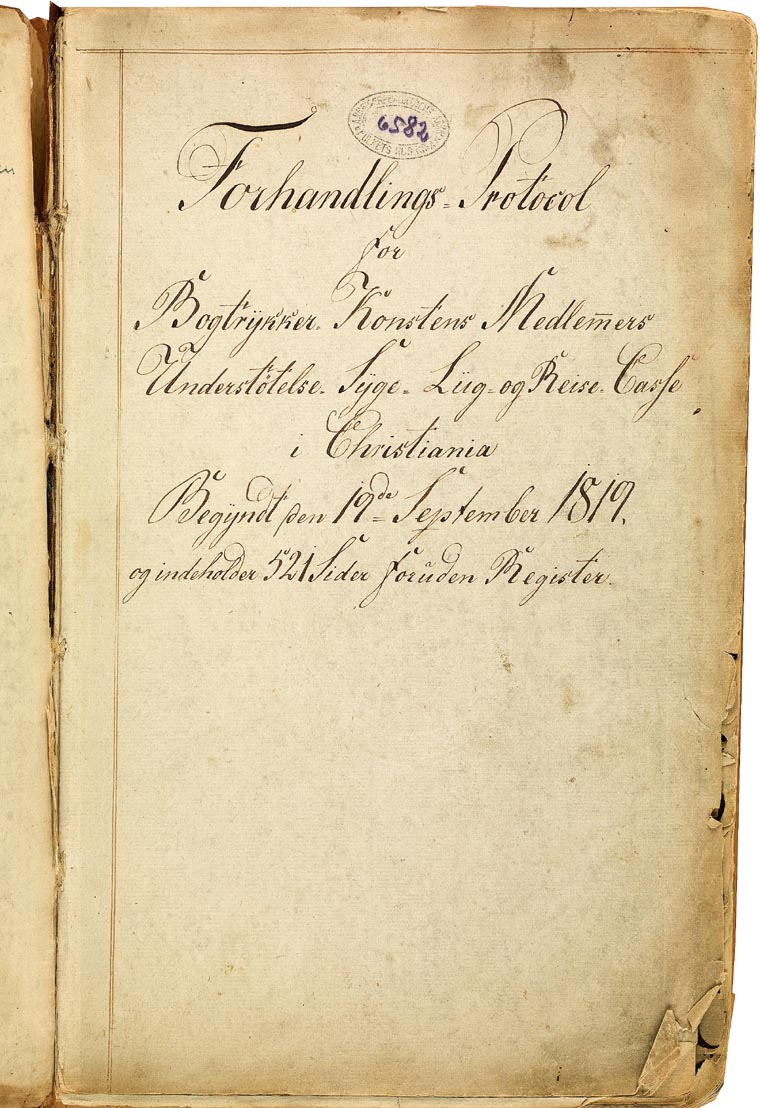 6582
Forhandlings-Protocol
for
Bogtrykker-Konstens Medlem̅ers
Understøtelse- Syge- Liig- og Reise-Casse
i Christiania
Begyndt den 19de September 1819.
og indeholder 521 Sider foruden Register.